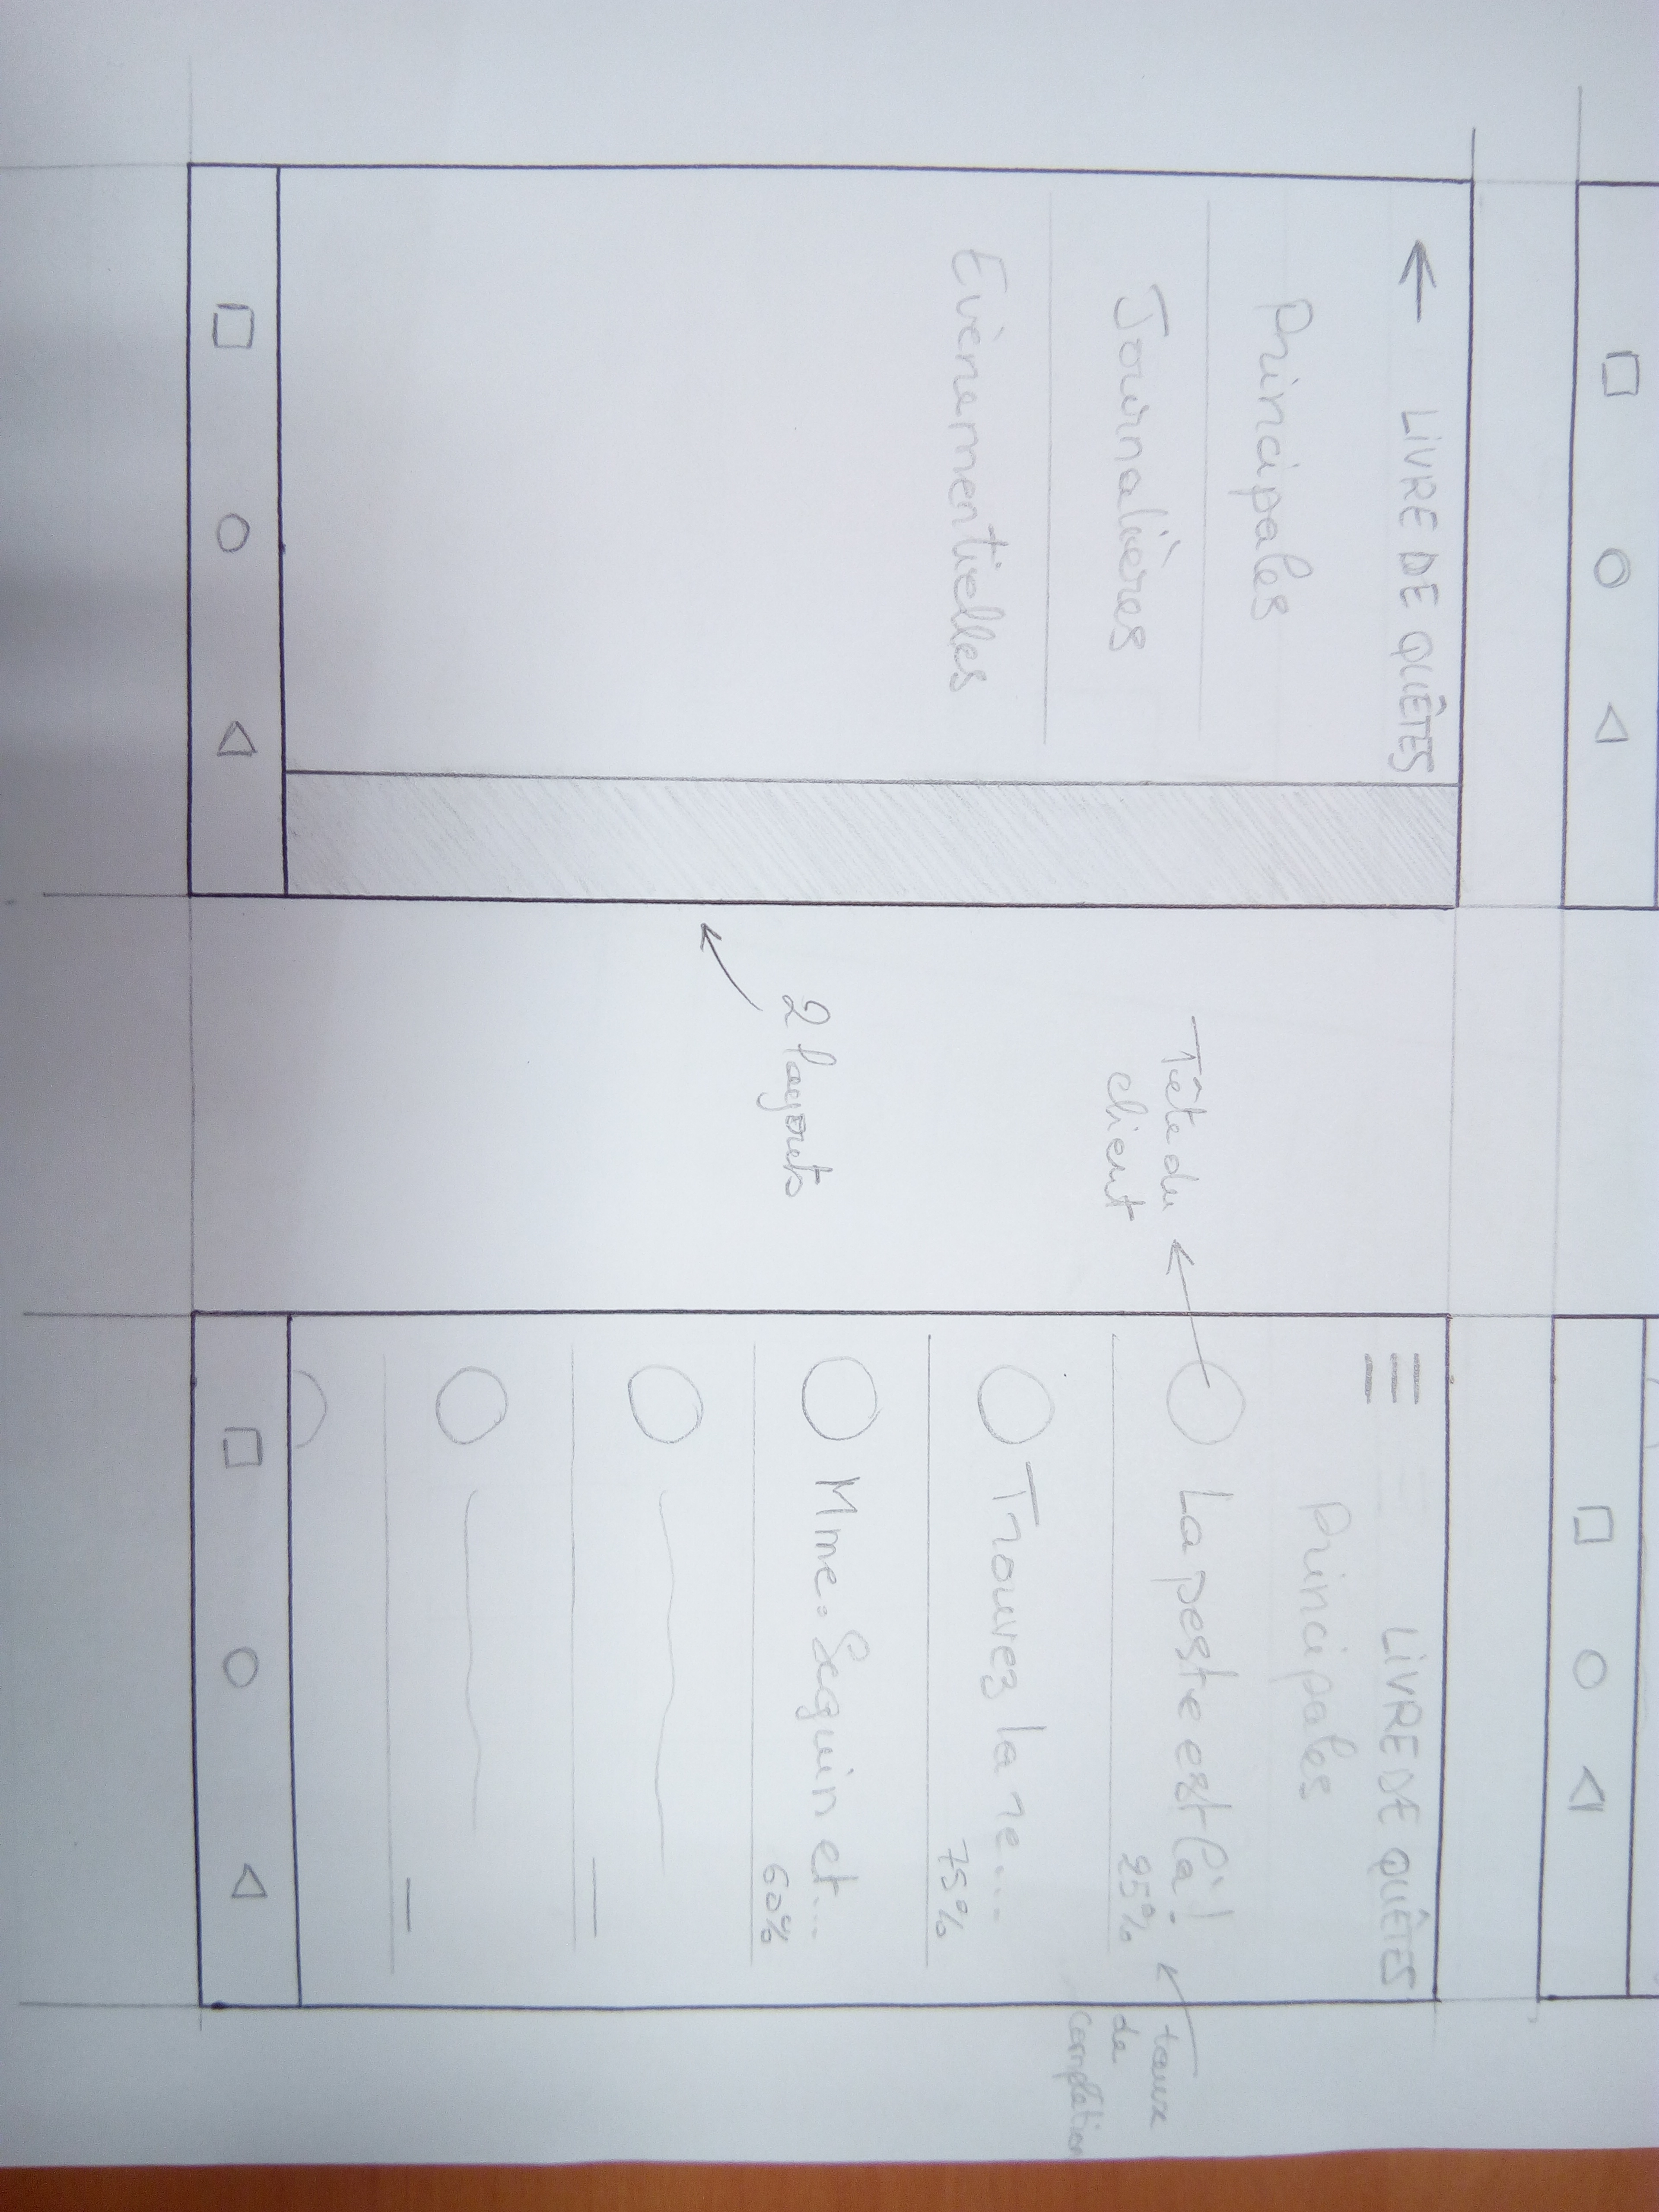 LIVRE DE QUÊTES
Principales
Journalières
Evènementielles
Tête du
client
2 layouts
LIVRE DE QUÊTES
Principales
La peste est là !
25%
Trouvez la re...
75%
Mme. Seguin et...
60%
taux
de
complétion